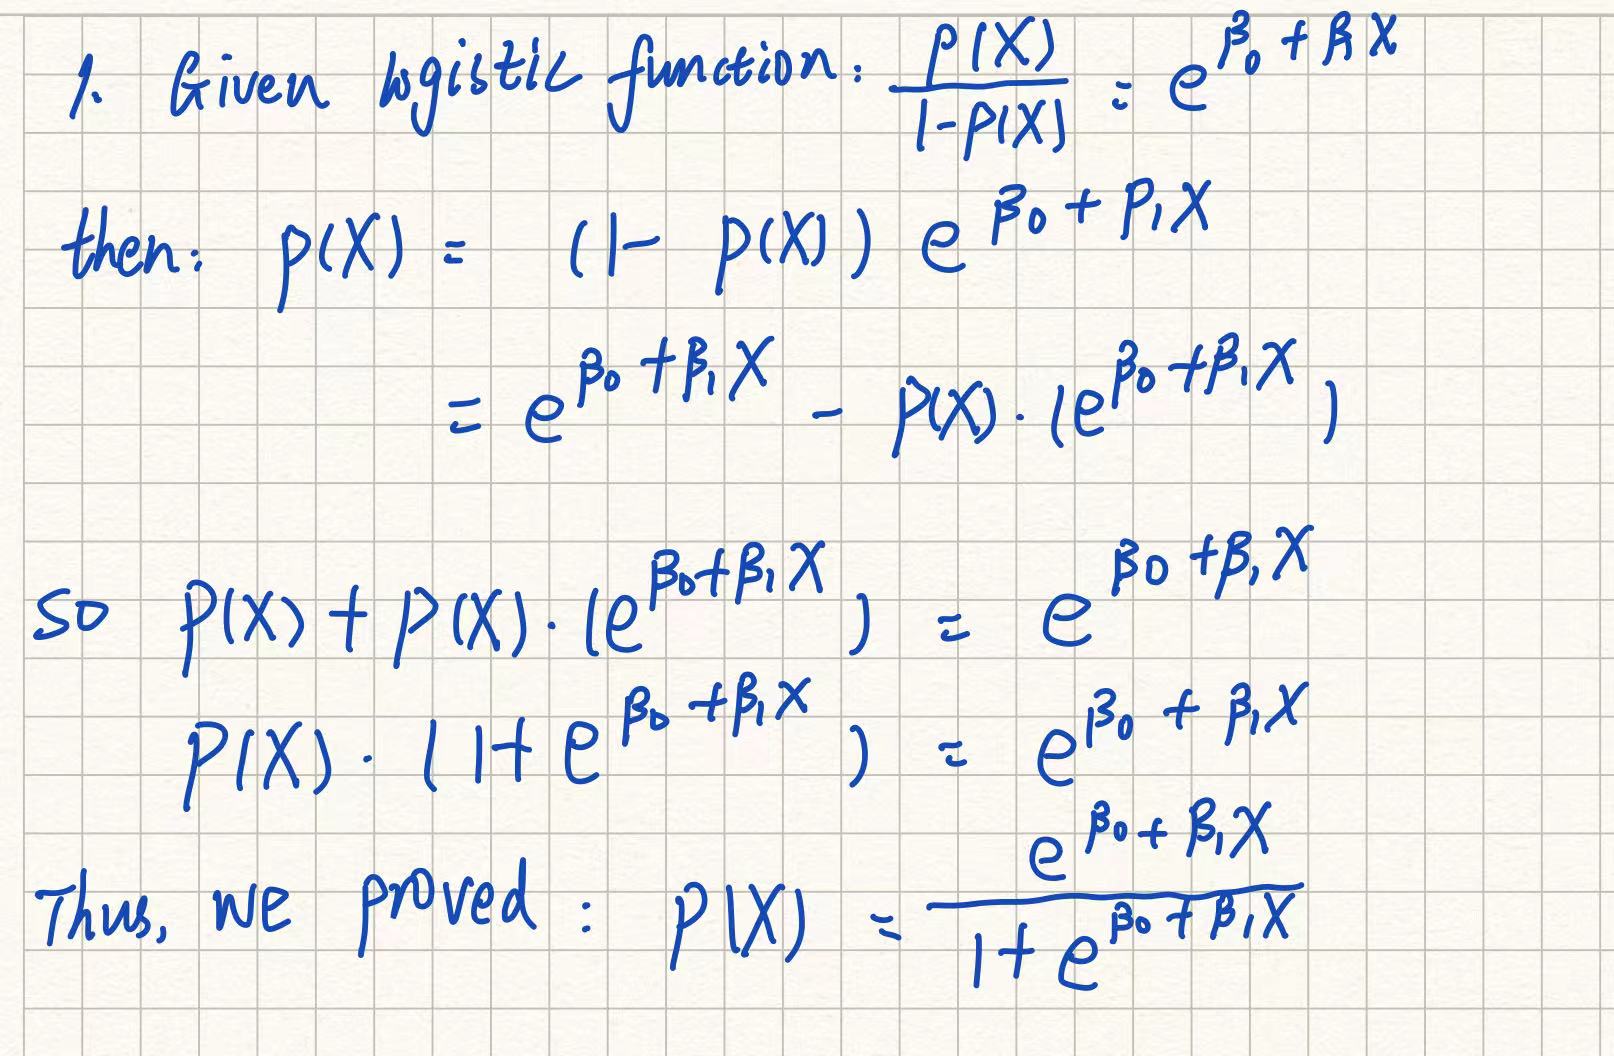 1. Given logistic function: p(X)/(1-p(X)) = e^(β₀ + β₁X)
then: p(X) = (1 - p(X)) e^(β₀ + β₁X)
= e^(β₀ + β₁X) - p(X) · (e^(β₀ + β₁X))
so p(X) + p(X) · (e^(β₀ + β₁X)) = e^(β₀ + β₁X)
p(X) · (1 + e^(β₀ + β₁X)) = e^(β₀ + β₁X)
Thus, we proved: p(X) = e^(β₀ + β₁X)/(1 + e^(β₀ + β₁X))